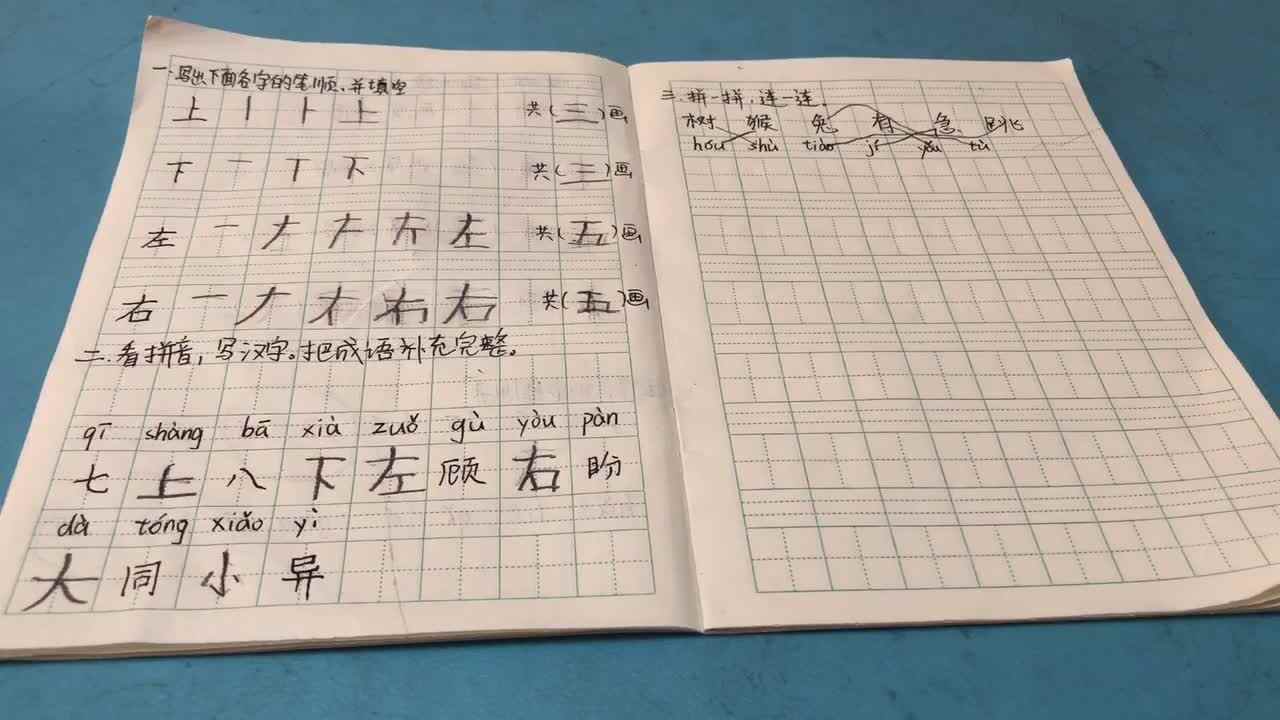 一.写出下面各字的笔顺,并填空
上 丨 ⺊ 上 共(三)画
下 一 丅 下 共(三)画
左 一 𠂇 左 共(五)画
右 一 𠂇 右 共(五)画
二.看拼音,写汉字。把成语补充完整。
qī shàng bā xià zuǒ gù yòu pàn
七 上 八 下 左 顾 右 盼
dà tóng xiǎo yì
大 同 小 异
三.拼一拼,连一连.
树 猴 兔 有 急 跳
hóu shù tiào jí yǒu tù